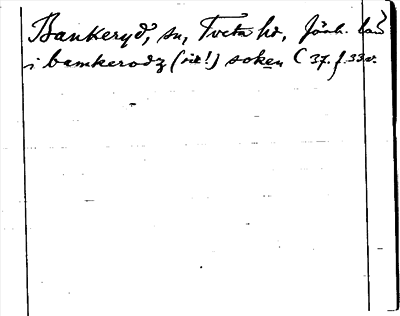 Bankeryd, sn, Tveta hd, Jönk. län
i bamkerodz (sic!) soken C 37. f. 33v.